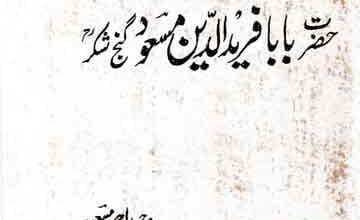 حضرت بابا فرید الدّین مسعود گنج شکرؒ